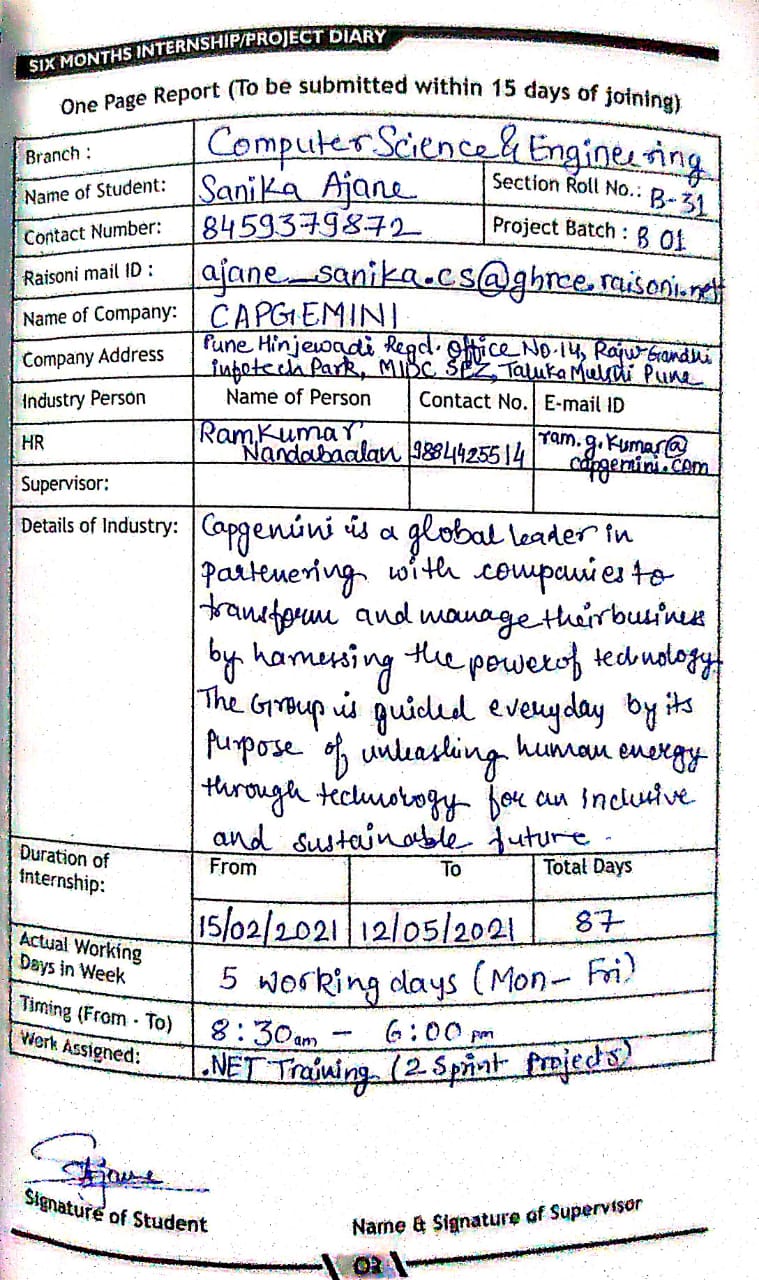 SIX MONTHS INTERNSHIP/PROJECT DIARY
One Page Report (To be submitted within 15 days of joining)
Branch : Computer Science & Engineering
Name of Student: Sanika Ajane Section Roll No.: B-31
Contact Number: 8459379872 Project Batch : B 01
Raisoni mail ID : ajane_sanika.cs@ghrce.raisoni.net
Name of Company: CAPGEMINI
Company Address Pune Hinjewadi Regd. Office No.14, Rajiv Gandhi
Infotech Park, MIDC SEZ, Taluka Mulshi Pune
Industry Person Name of Person Contact No. E-mail ID
HR Ram Kumar Nandabaalan 9884425514 ram.g.kumar@capgemini.com
Supervisor:
Details of Industry: Capgemini is a global leader in
partenering with companies to
transform and manage their business
by harnessing the power of technology.
The Group is guided everyday by its
purpose of unleashing human energy
through technology for an inclusive
and sustainable future.
Duration of Internship: From To Total Days
15/02/2021 12/05/2021 87
Actual Working Days in Week 5 working days (Mon- Fri)
Timing (From - To) 8:30am - 6:00 pm
Work Assigned: .NET Training (2 Sprint Projects)
Sajane
Signature of Student
Name & Signature of Supervisor
03